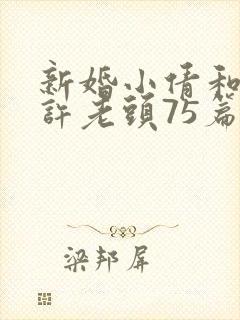 新婚小倩和
許老頭75篇
梁邦屏